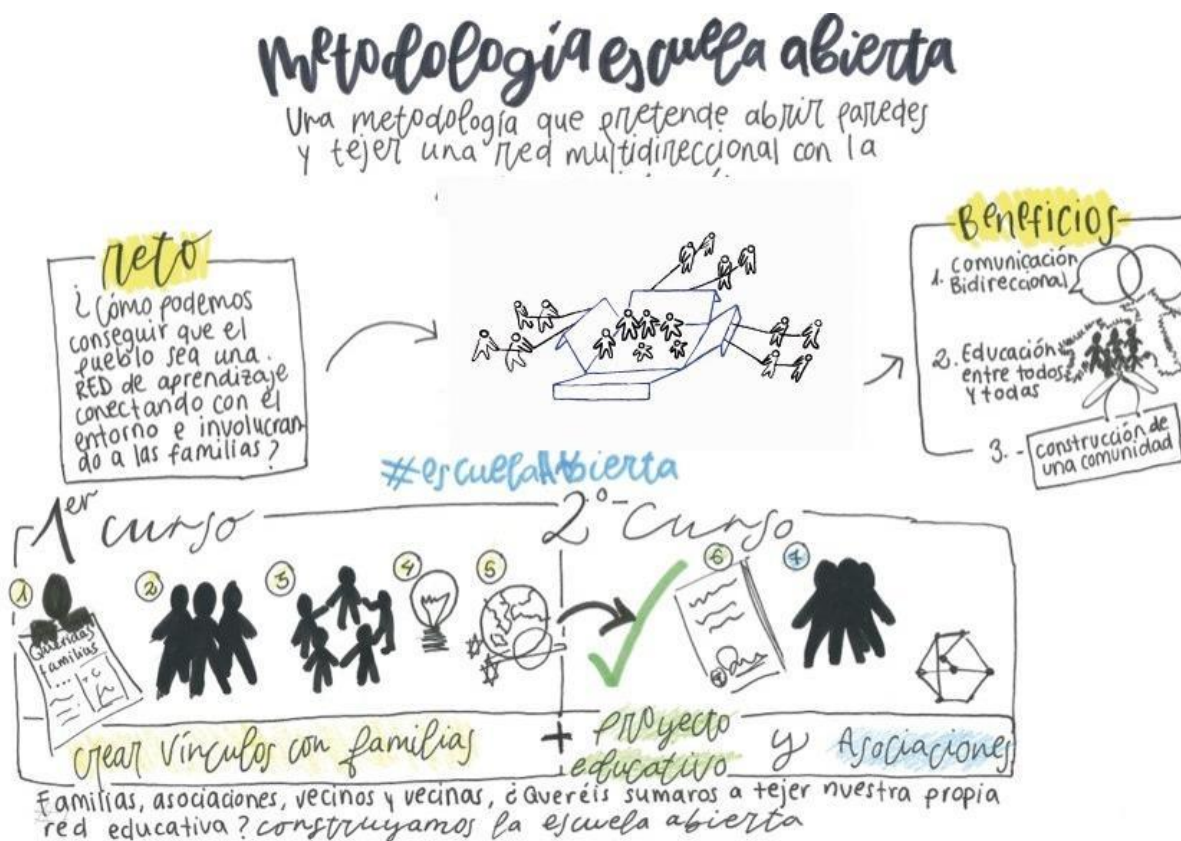 metodología escuela abierta
Una metodología que pretende abrir paredes
y tejer una red multidireccional con la
reto
¿Cómo podemos
conseguir que el
pueblo sea una
RED de aprendizaje
conectando con el
entorno e involucran
do a las familias?
Beneficios
1. Comunicación
Bidireccional
2. Educación
entre todos
y todas
3.- construcción de
una comunidad
#escuelaAbierta
1er curso
1
2
3
4
5
Queridas
familias
2º curso
6
7
crear vínculos con familias
+
proyecto
educativo
y
Asociaciones
Familias, asociaciones, vecinos y vecinas, ¿Queréis sumaros a tejer nuestra propia
red educativa? construyamos la escuela abierta